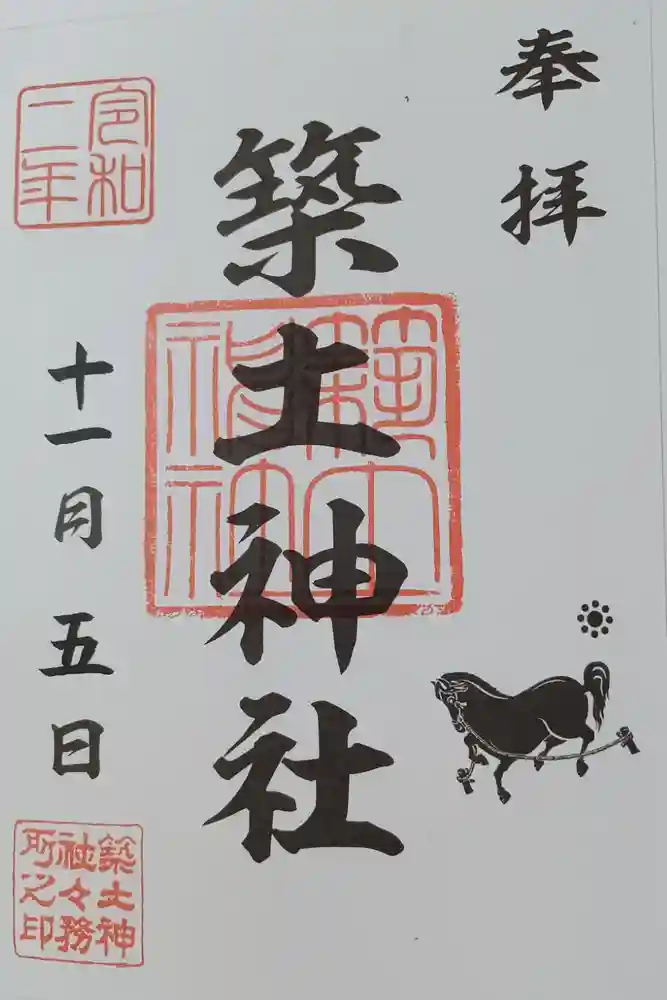 奉拝
築土神社
築土神社
令和二年
十一月五日
築土神社々務所之印